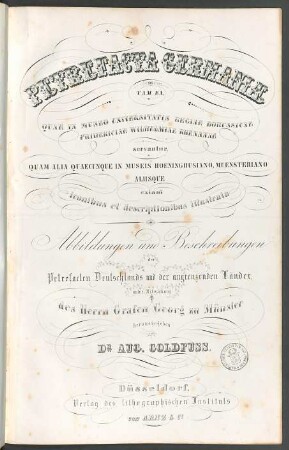 PETREFACTA GERMANIÆ
TAM EA,
QUAE IN MUSEO UNIVERSITATIS REGIAE BORUSSICAE
FRIDERICIAE WILHELMIAE RHENANAE
servantur,
QUAM ALIA QUAECUNQUE IN MUSEIS HOENINGHUSIANO, MUENSTERIANO
ALIISQUE
extant
iconibus et descriptionibus illustrata
Abbildungen und Beschreibungen
der
Petrefacten Deutschlands und der angrenzenden Länder,
unter Mitwirkung
des Herrn Grafen Georg zu Münster
herausgegeben
von
Dr. AUG. GOLDFUSS.
Düsseldorf,
Verlag des lithographischen Instituts
von ARNZ & Co